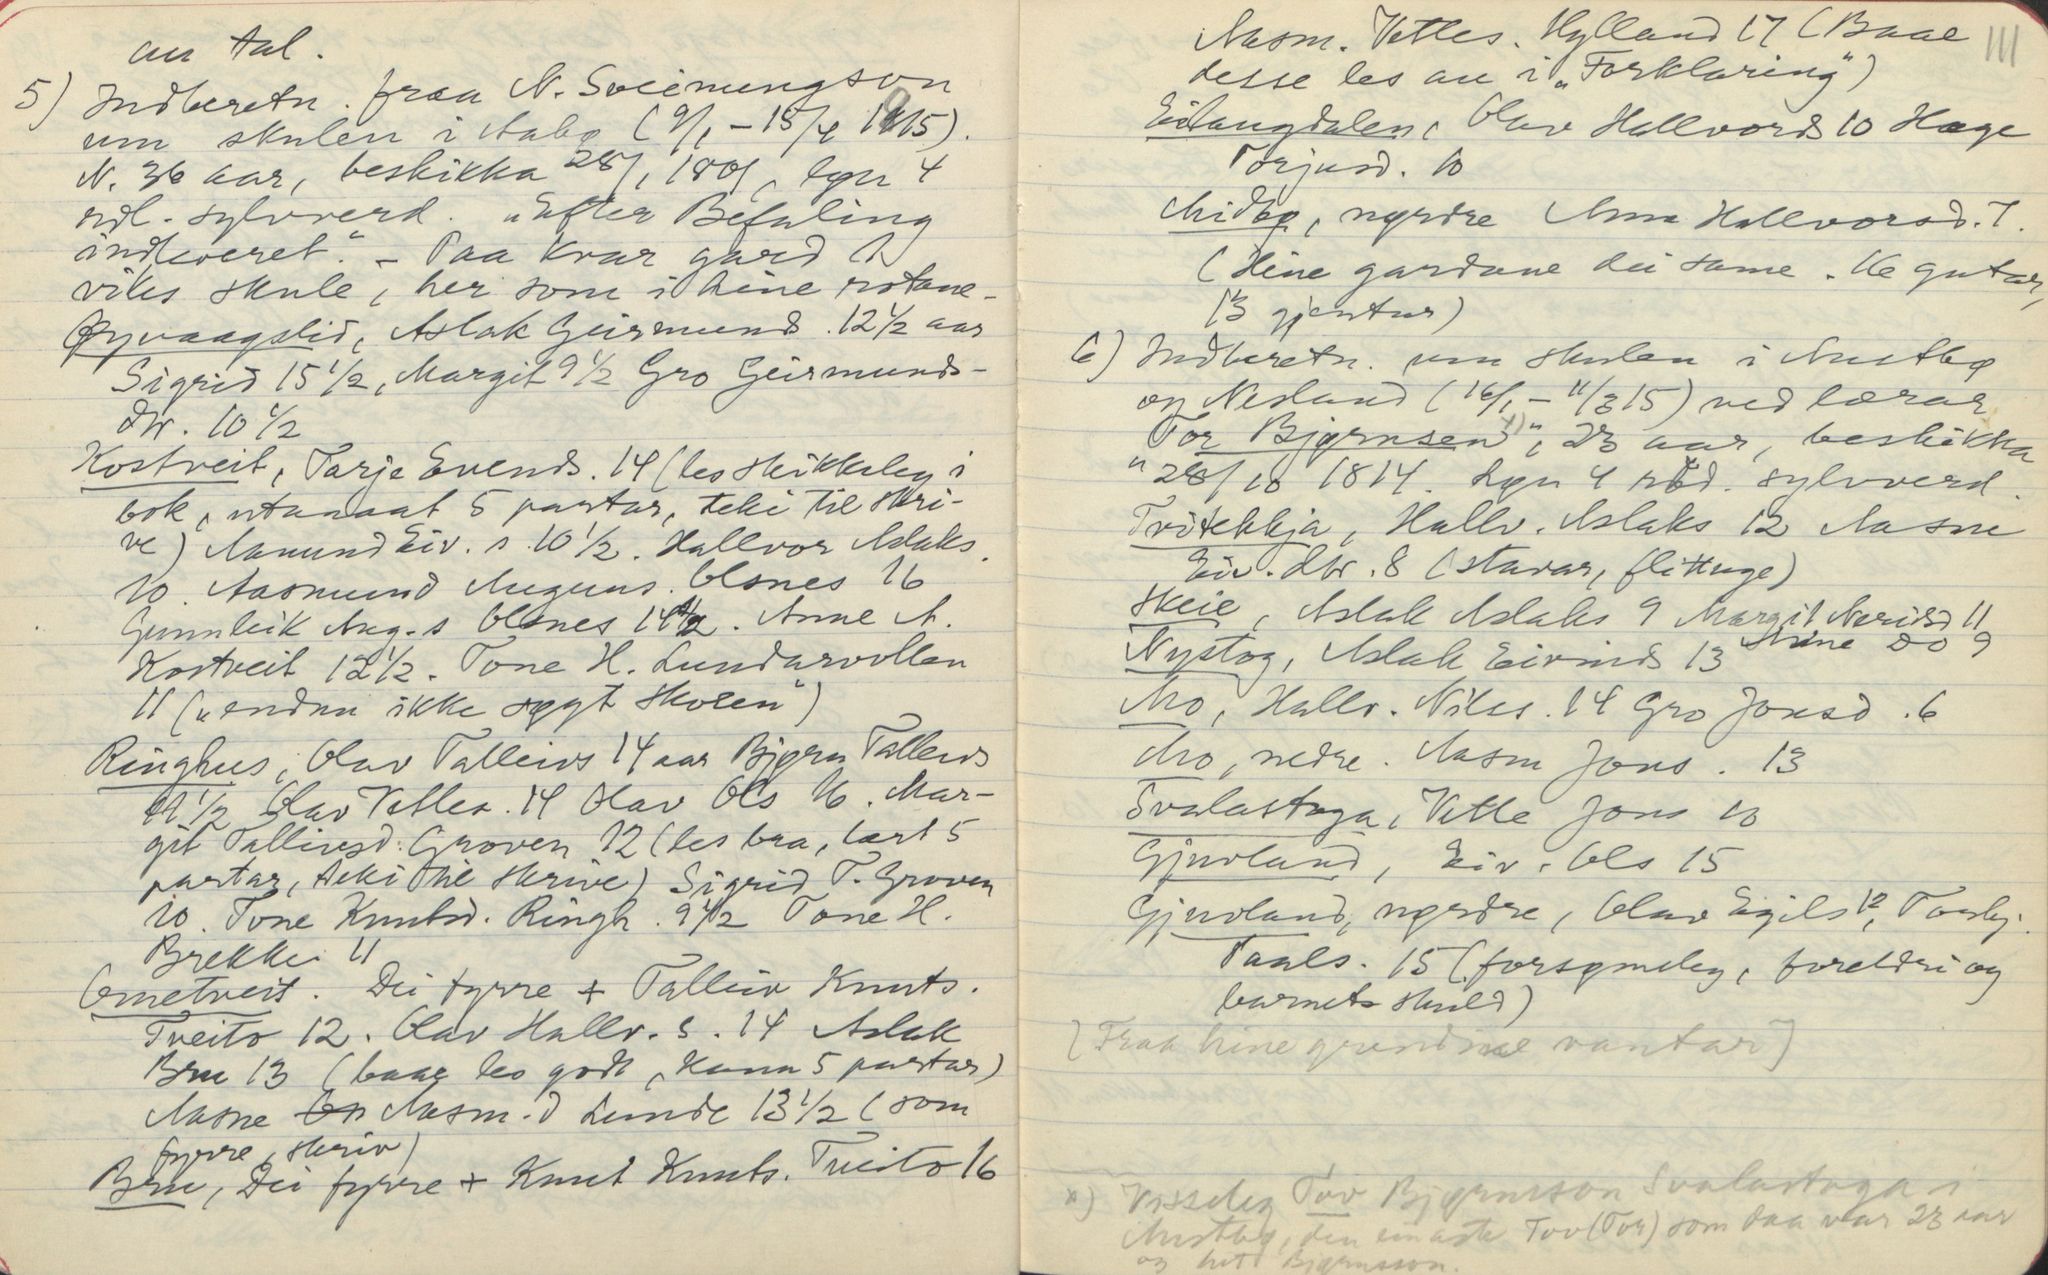 an tal.
5) Indberetn. fraa N. Sveinungson
um skulen i Aabø (9/1 – 15/4 1815).
N. 36 aar, beskikka 28/1 1801, løgn 4
rdl. sylvverd. „Efter Befaling
indleveret." – Paa kvar gard 2
vikes skule, her som i hine rotane.
Øyvaagslid, Aslak Geirmunds. 12 1/2 aar
Sigrid 15 1/2, Margit 9 1/2 Gro Geirmunds-
dtr. 10 1/2
Kostveit, Tarje Evends. 14 (les skikkeleg i
bok, utanaat 5 partar, teki til skri-
ve) Aamund Eiv. s. 10 1/2. Hallvor Aslaks.
10. Aasmund Auguns. Olsnes 16
Gunnleik Aug. s Olsnes 14 1/2. Anne A.
Kostveit 12 1/2. Tone H. Lundarvollen
11 („endnu ikke søgt skolen")
Ringhus, Olav Talleivs 14 aar Bjørn Talleivs
11 1/2 Olav Vetles. 14 Olav Ols 16. Mar-
git Talleivsd. Groven 12 (les bra, lært 5
partar, teki til skrive) Sigrid T. Groven
10. Tone Knutsd. Ringh. 9 1/2 Tone H.
Brekke 11
Ometveit. Dei fyrre + Talleiv Knuts.
Tveito 12. Olav Hallv. s. 14 Aslak
Bru 13 (baae les godt, kann 5 partar)
Aasne Aasm. d Lunde 13 1/2 (som
fyrre, skriv)
Bru, Dei fyrre + Knut Knuts. Tveito 16
111
Aasm. Vetles. Hylland 17 (Baae
desse les au i „Forklaring")
Eilaugdalen, Olav Hallvords 10 Hæge
Torjusd. 10
Midbø, nørdre Anne Hallvorsd. 7.
(Hine gardane dei same. 16 gutar,
13 gjentur)
6) Indberetn. um skulen i Austbø
og Nesland (16/1 – 11/3 15) ved lærar
„Tor Bjørnsen" x), 23 aar, beskikka
28/10 1814. Løgn 4 rbd. sylvverd.
Tvitekkja, Hallv. Aslaks 12 Aasne
Eiv. dtr. 8 (stavar, flittuge)
Skeie, Aslak Aslaks 9 Margit Nerisd 11
Stine do 9
Nystog, Aslak Eivinds 13
Mo, Hallv. Nikls. 14 Gro Jonsd. 6
Mo, nedre. Aasm Jons. 13
Svalastoga, Vetle Jons 10
Gjuvland, Eiv. Ols 15
Gjuvland, nørdre, Olav Egils 12, Torbj.
Paals. 15 (forsømeleg, foreldri og
barnets skuld)
[Fraa hine grendine vantar]
x) Visseleg Tov Bjørnson Svalastoga i
Austbø, den einaste Tov (Tor) som daa var 23 aar
og heit Bjørnsson.